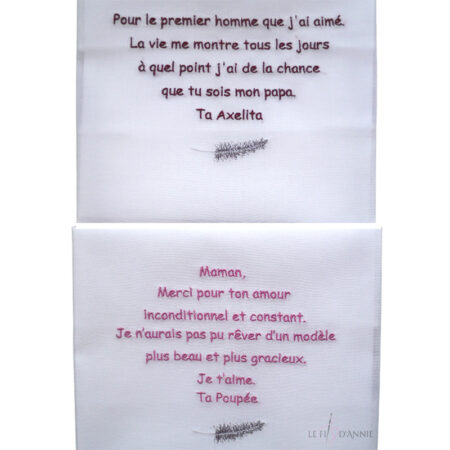 Pour le premier homme que j'ai aimé.
La vie me montre tous les jours
à quel point j'ai de la chance
que tu sois mon papa.
Ta Axelita
Maman,
Merci pour ton amour
inconditionnel et constant.
Je n'aurais pas pu rêver d'un modèle
plus beau et plus gracieux.
Je t'aime.
Ta Poupée
LE FIL D'ANNIE